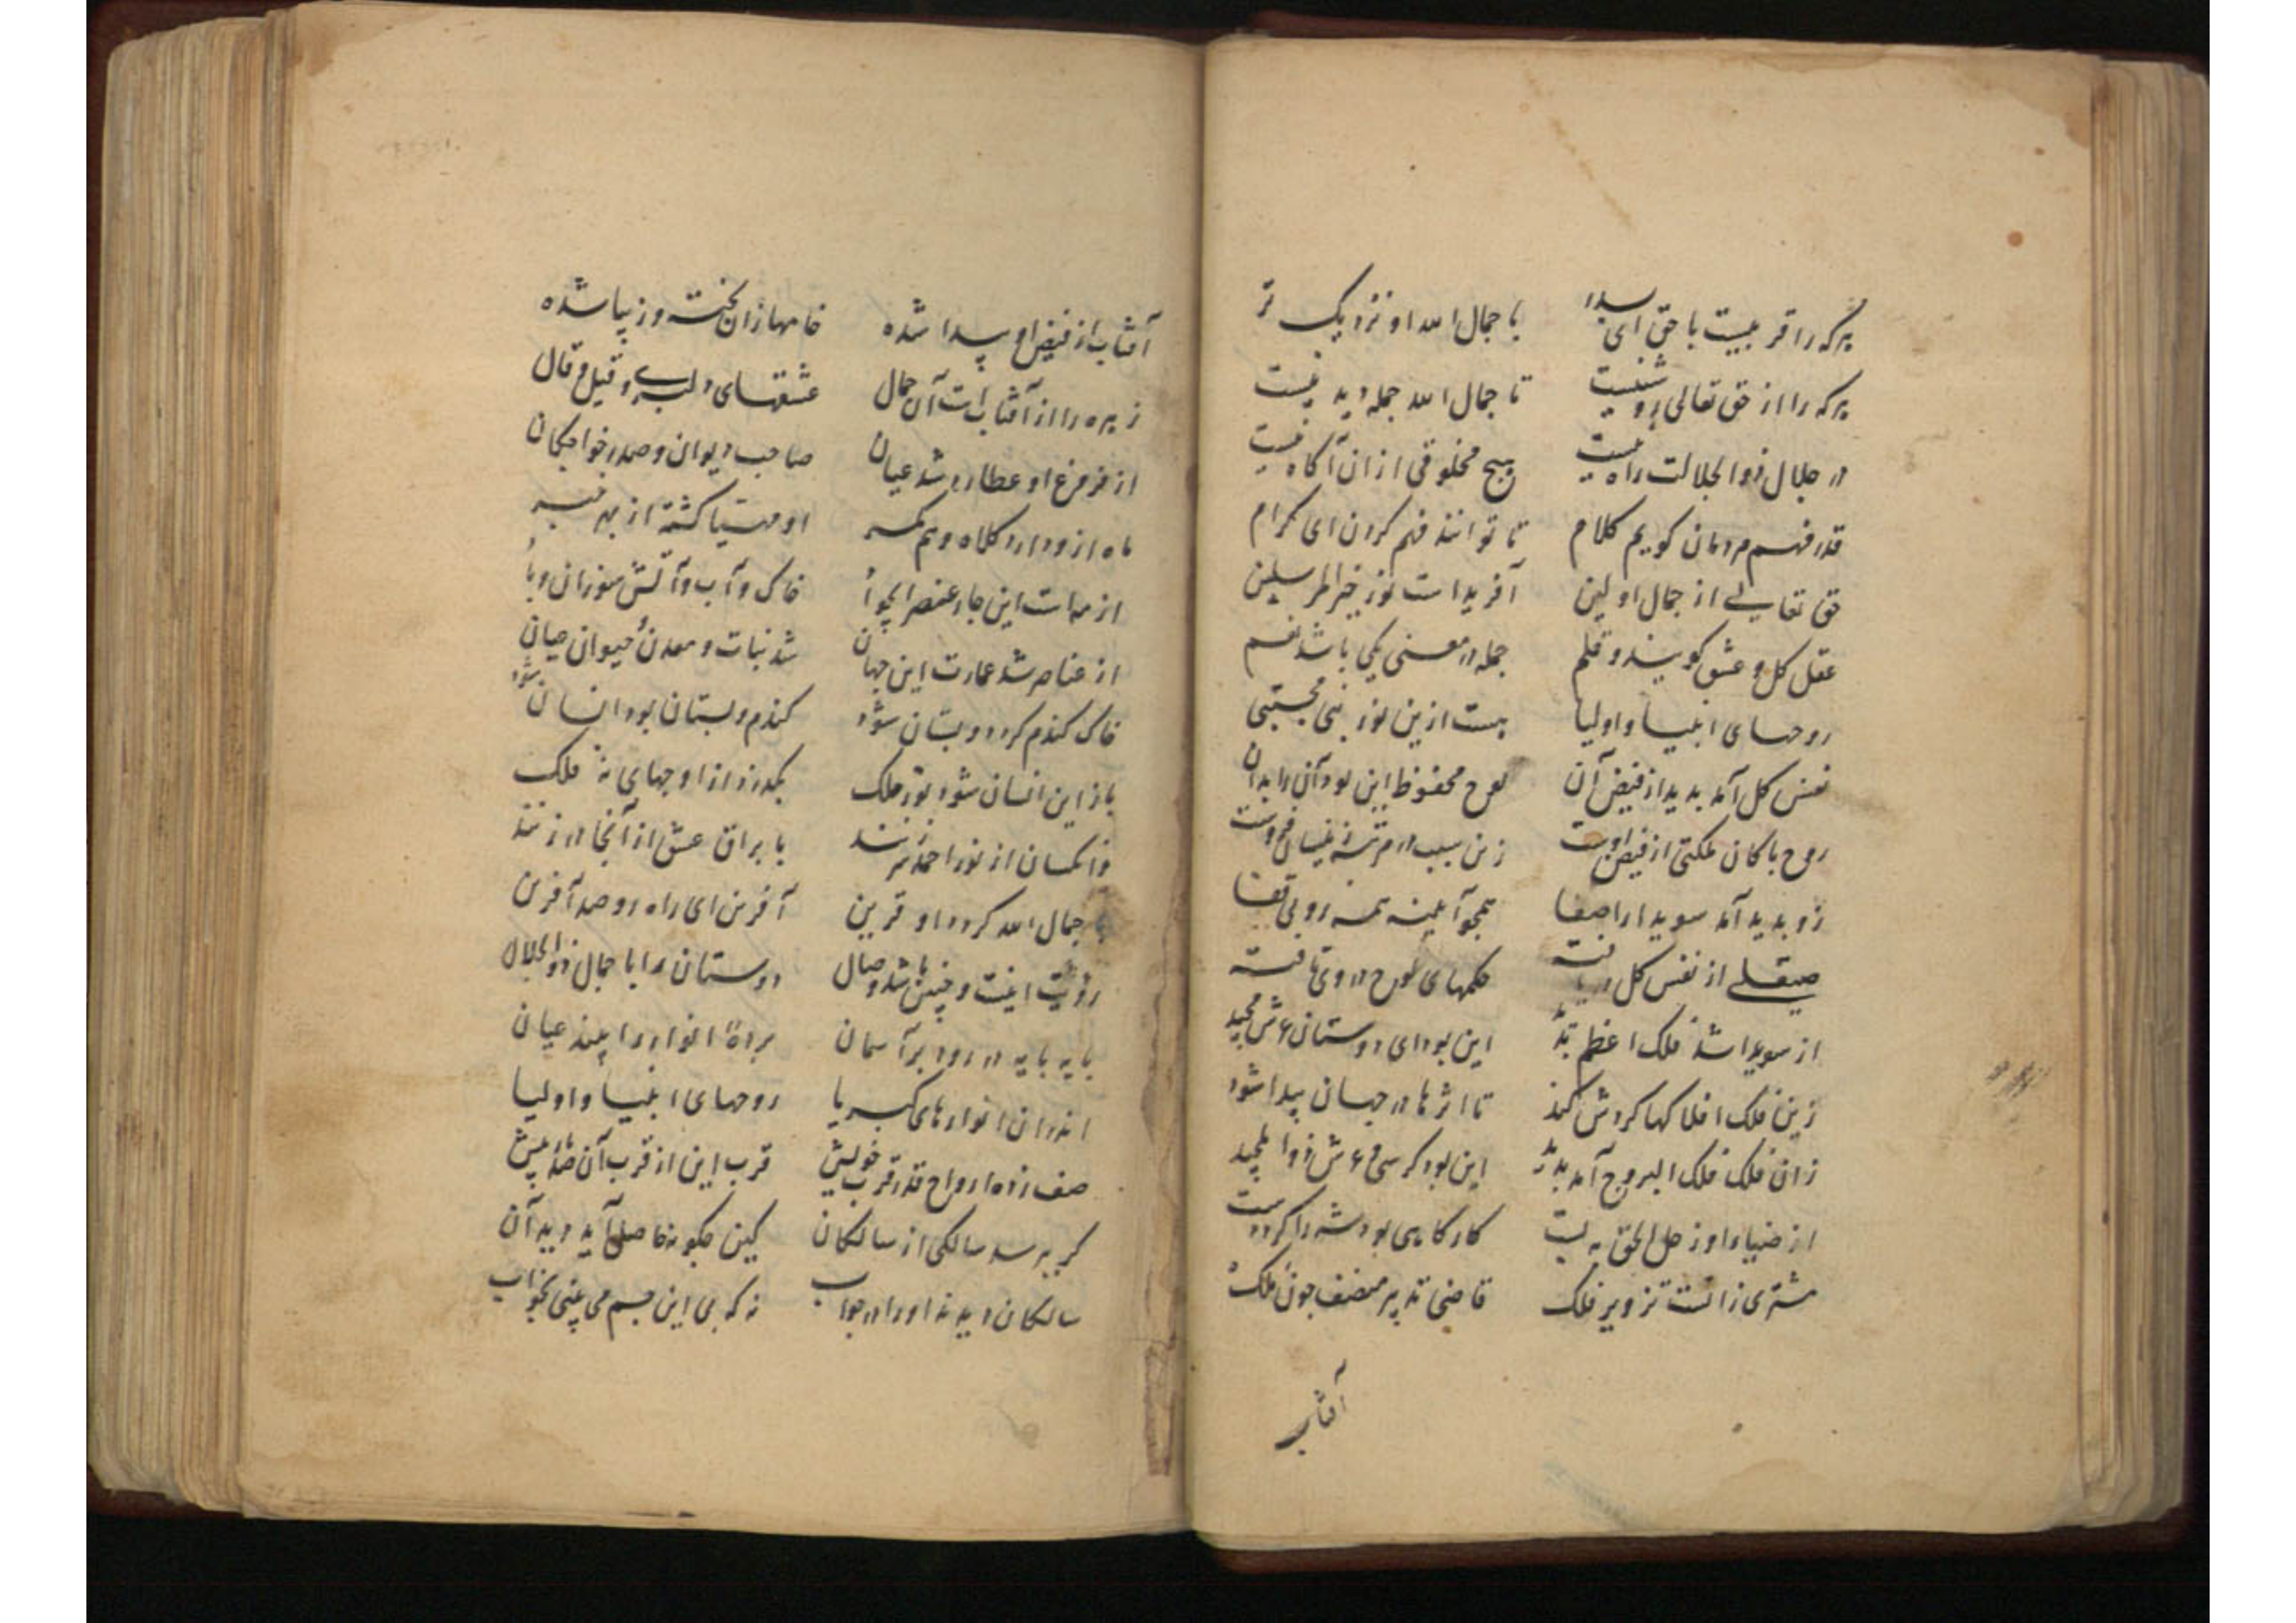 هرکه را قربیست با حق ای پسر با جمال الله او نزدیک تر
هرکه را از حق تعالی روشنیست تا جمال الله جمله دیدنیست
در جلال ذوالجلالت راه نیست هیچ مخلوقی ازان آکاه نیست
قدر فهم مردمان کویم کلام تا توانند فهم کردن ای کرام
حق تعالی از جمال اولین آفریداست نور خیرالمرسلین
عقل کل و عشق کویند و قلم جمله در معنی یکی باشد نعم
روحهای انبیا و اولیا هست ازین نور نبی مجتبی
نفس کل آمد بدید از فیض آن لوح محفوظ این بود آن را بدان
روح باکان ملکتی از فیض اوست زین سبب در مرتبه
زو بدید آمد سویدا را صفا همجو آیینه همه رو بی قفا
صیقلی از نفس کل دریافته حکمهای لوح در وی تافته
از سویدا شد فلک اعظم بدید این بود ای دوستان عرش مجید
زین فلک افلاکها کردش کند تا اثرها در جهان پیدا شود
زان فلک فلک البروج آمد بدید این بود کرسی و عرش ذوالمجید
از ضیاء او زحل الحق به بست کارکاهی بود شه را کرد هست
مشتری زانست تزویر فلک قاضی تدبیر منصف جون ملک
آفتاب
آفتاب از فیض او پیدا شده خامها زان پخته و زیبا شده
زهره را از آفتاب است آن جمال عشقهای دلبر و قیل و قال
از فروغ او عطارد شد عیان صاحب دیوان و صدر خواجکان
ماه ازو دارد کلاه و هم کمر او مهیا کشته از بهر خبر
از مه است این جار عنصر ای جوان خاک و آب و آتش سوزان و باد
از عناصر شد عمارت این جهان شد نبات و معدن و حیوان جهان
خاک کندم کردد و بستان شود کندم و بستان بود انسان شود
باز این انسان شود نور ملک بکذرد از اوجهای نه فلک
وانکسان از نور احمد بر زنند با براق عشق از آنجا در زنند
با جمال الله کردد او قرین آفرین ای راه رو صد آفرین
رؤیت اینست و چنین باشد وصال دوستان را با جمال ذوالجلال
بایه بایه در رود بر آسمان بردهٔ انوار را بیند عیان
اندران انوارهای کبریا روحهای انبیا و اولیا
صف زده ارواح قدر قرب خویش قرب این از قرب آن صد بیش
کر بپرسد سالکی از سالکان کین جکونه حاصل آید دید آن
سالکان دیدند او را در جواب نه که بی این جسم می بینی بخواب